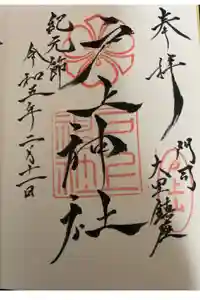 奉拝
門司
大里鎮座
戸上神社
紀元節
令和五年二月十一日